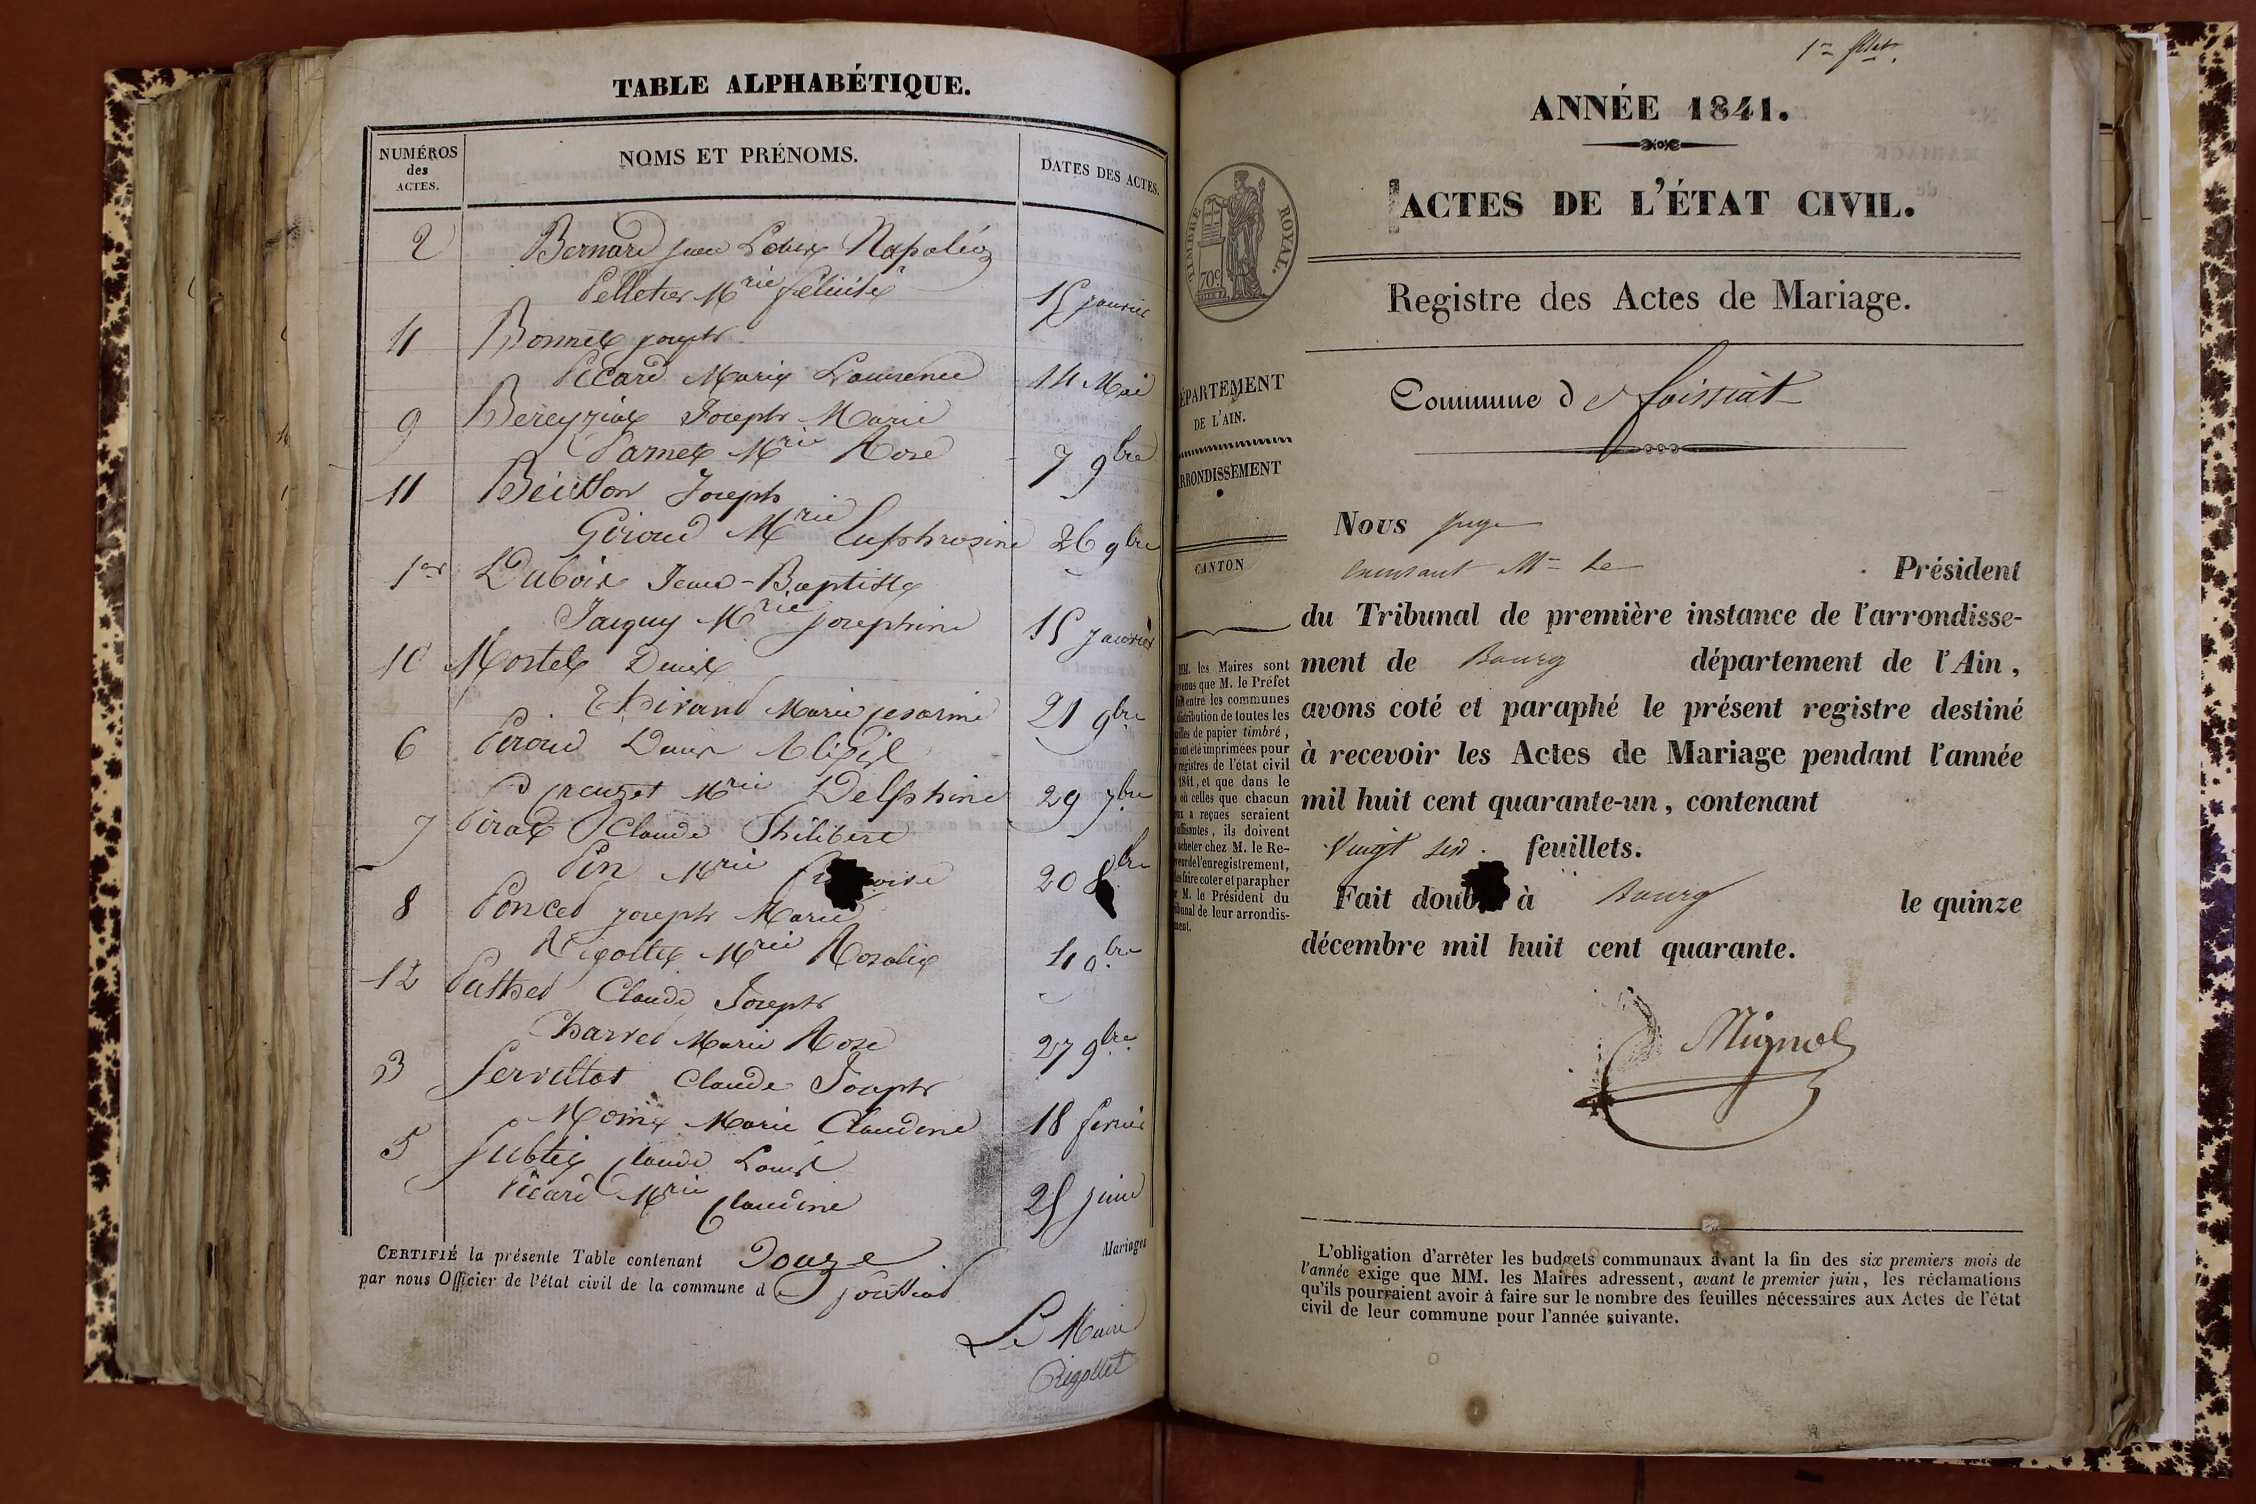 TABLE ALPHABÉTIQUE.
NUMÉROS
des
ACTES.
NOMS ET PRÉNOMS.
DATES DES ACTES.
2 Bernard Jean Louis Napoléon
Pelletier Mrie félicité 15 janvier
4 Bonnet joseph
Picard Marie Laurence 14 Mai
9 Bereyziat Joseph Marie
Parnet Mrie Rose 7 9bre
11 Joseph
Giroud Mrie Euphrosine 26 9bre
1er Dubois Jean-Baptiste
Jacquy Mrie josephine 15 janvier
10 Mortel Denis
Marie 21 9bre
6 Piroud Denis
Creuzet Mrie Delphine 29 7bre
7 Pirat Claude Philibert
Pin Mrie 20 8bre
8 Poncet joseph Marie
Rigollet Mrie Rosalie 4 9bre
12 Puthet Claude Joseph
Charvet Marie Rose 27 9bre
3 Servillat Claude Joseph
Moine Marie Claudine 18 fevrier
5 Subtil Claude Louis
Picard Mrie Claudine 25 juin
CERTIFIÉ la présente Table contenant Douze Mariages
par nous Officier de l'état civil de la commune de foissiat
Le Maire
Rigollet
1er fllet.
ANNÉE 1841.
ACTES DE L'ÉTAT CIVIL.
TIMBRE ROYAL.
70c
Registre des Actes de Mariage.
Commune de foissiat
DÉPARTEMENT
DE L'AIN.
ARRONDISSEMENT
CANTON
Nous juge
Mr le Président
du Tribunal de première instance de l'arrondisse-
ment de Bourg département de l'Ain,
avons coté et paraphé le présent registre destiné
à recevoir les Actes de Mariage pendant l'année
mil huit cent quarante-un, contenant
Vingt six feuillets.
Fait double à Bourg le quinze
décembre mil huit cent quarante.
Mignot
MM. les Maires sont
que M. le Préfet
entre les communes
distribution de toutes les
de papier timbré,
ont été imprimées pour
registres de l'état civil
1841, et que dans le
où celles que chacun
a reçues seraient
, ils doivent
acheter chez M. le Re-
de l'enregistrement,
faire coter et parapher
M. le Président du
de leur arrondis-
L'obligation d'arrêter les budgets communaux avant la fin des six premiers mois de
l'année exige que MM. les Maires adressent, avant le premier juin, les réclamations
qu'ils pourraient avoir à faire sur le nombre des feuilles nécessaires aux Actes de l'état
civil de leur commune pour l'année suivante.